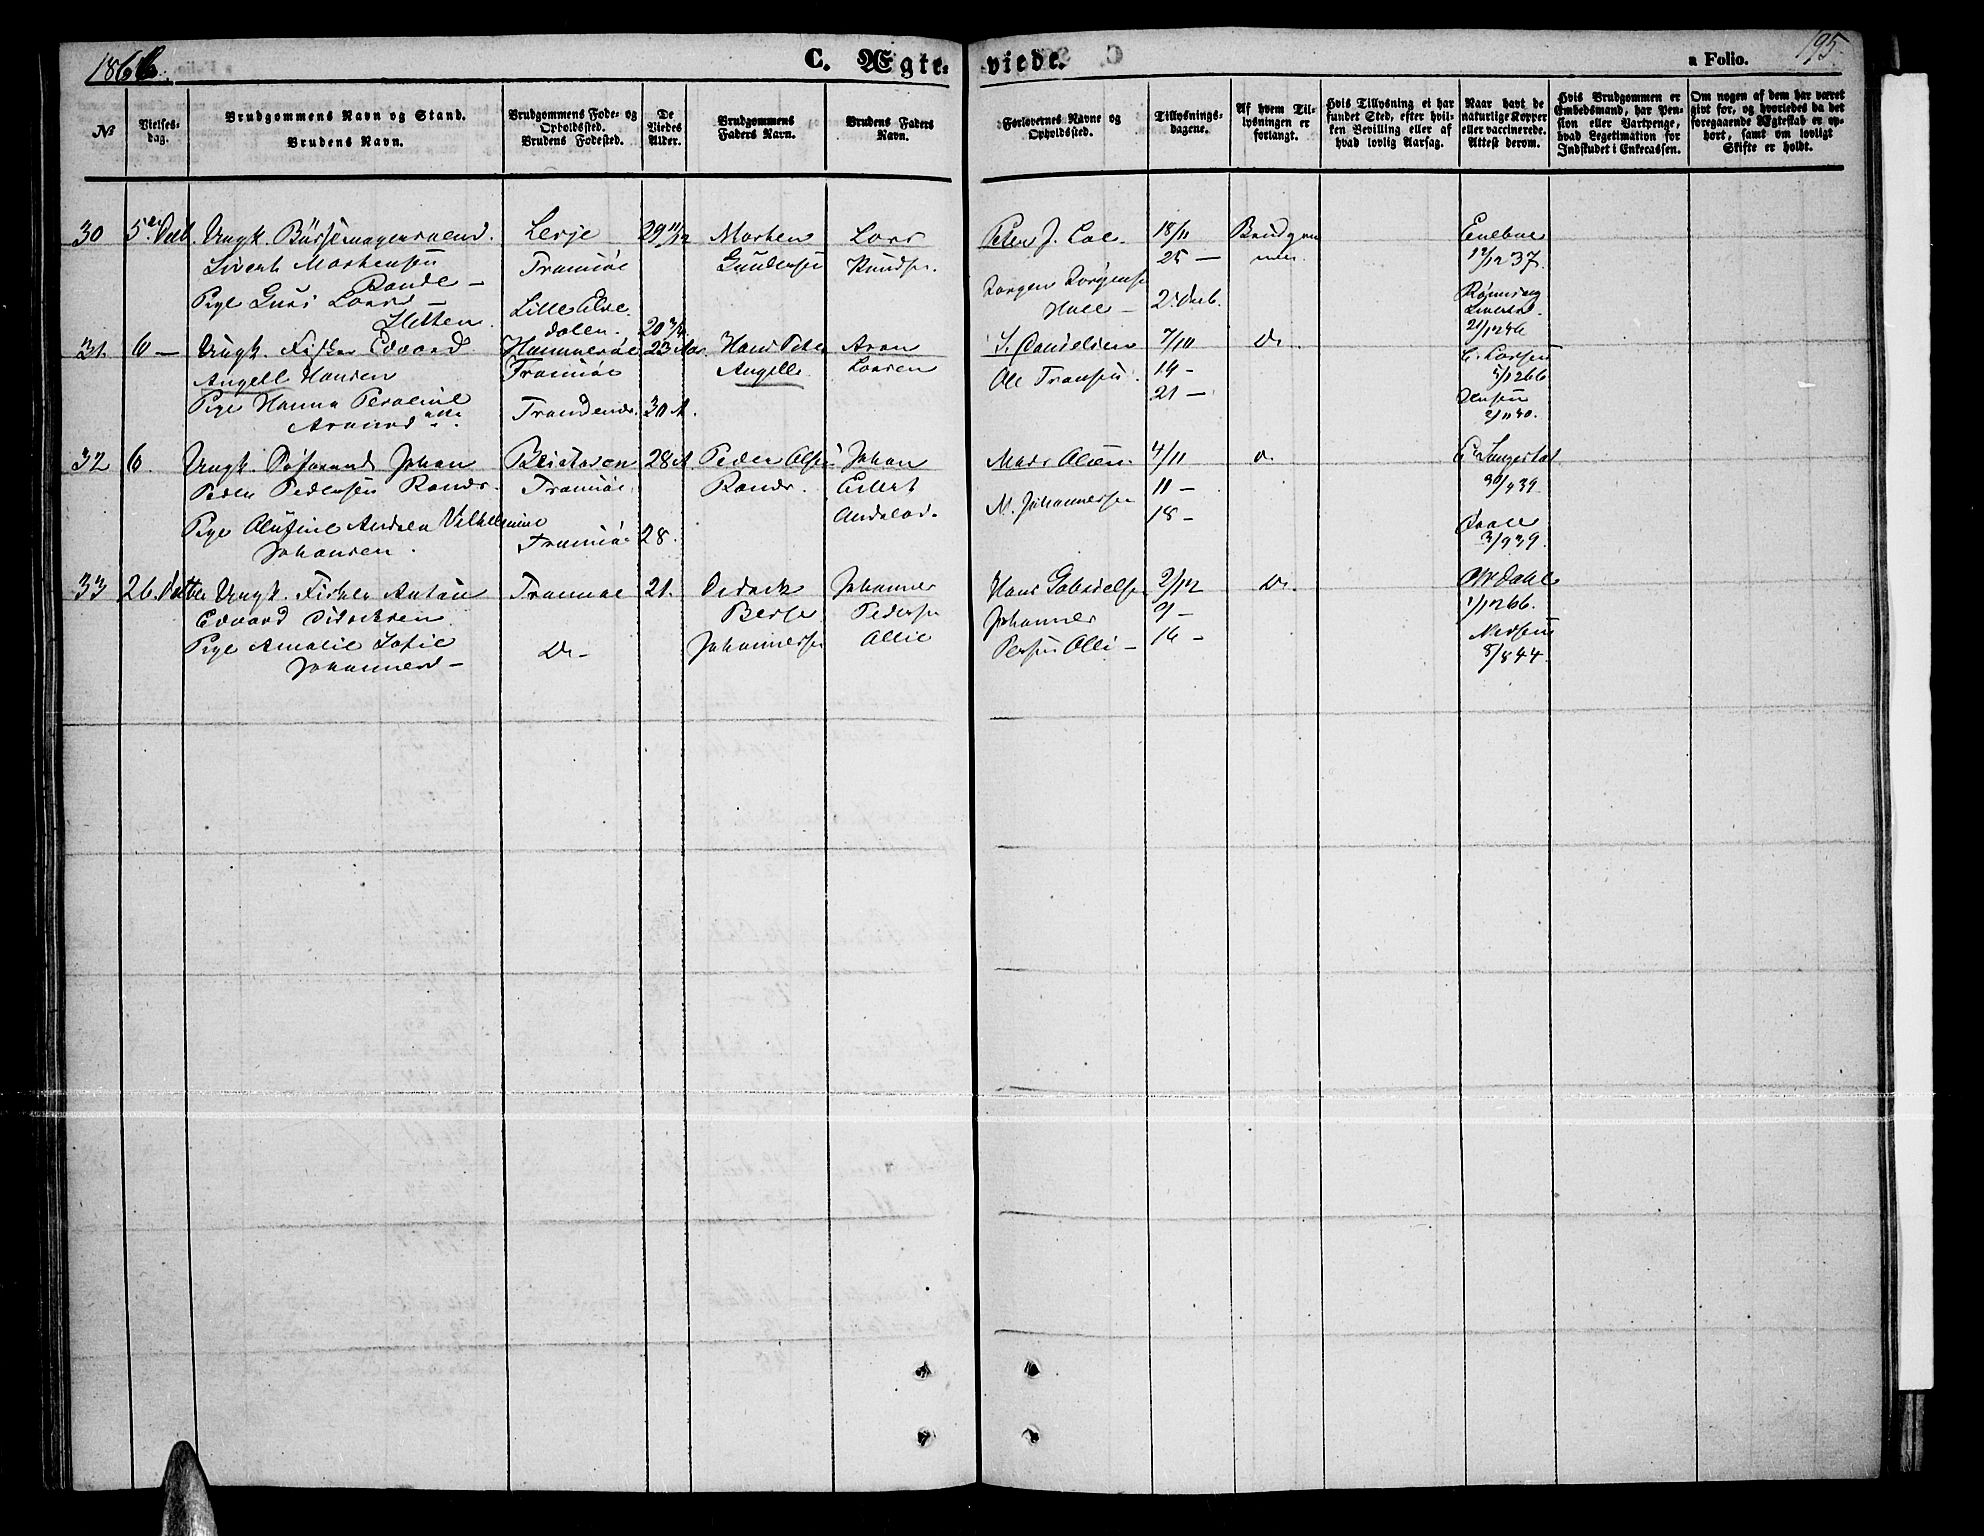 1866.
C. Ægte-
viede.
a Folio.
195.
No
Vielses-
dag.
Brudgommens Navn og Stand.
Brudens Navn.
Brudgommens Føde- og
Opholdssted.
Brudens Fødested.
De
Viedes
Alder.
Brudgommens
Faders Navn.
Brudens Faders
Navn.
Forlovernes Navne og
Opholdssted.
Tillysnings-
dagene.
Af hvem Til-
lysningen er
forlangt.
Hvis Tillysning ei har
fundet Sted, efter hvil-
ken Bevilling eller af
hvad lovlig Aarsag.
Naar havt de
naturlige Kopper
eller vaccinerede.
Attest derom.
Hvis Brudgommen er
Embedsmand, har Pen-
sion eller Vartpenge,
hvad Legitimation for
Indskudet i Enkecassen.
Om nogen af dem har været
gift før, og hvorledes da det
foregaaende Ægteskab er op-
hørt, samt om lovligt
Skifte er holdt.
30
Ungk. Bøssemagersvend
Sivert Mortensen
Rande –
Pige Guri Lars
Lesje
Tromsøe
Lille Elve
dalen.
29 11/12
Morten
Gundersen
Lars
Knudsen.
Peter J.
Jørgen Jørgensen
18/11
25 –
2 Decb.
Brudgom
men
Enebue
12/12 37.
Rønning
21/12 46
31.
6 –
Ungk. Fisker Edvard
Angell Hansen
Pige Hanna Peroline
Hammerøe
Tromsøe
Trondenes.
23 Aar
30 A.
Hans Peter
Angell.
Aron
Larsen
S. Danielsen
Ole Fransen.
7/10
14 –
21 –
Do.
C. Larsen
5/12 66
Jensen
2/11 40.
32
6.
Ungk. Johan
Peder Pedersen Rander.
Pige Olufine Andrea Vilhelmine
Johansen.
Tromsøe
Tromsøe
28 A
28.
Peder Olsen
Rander.
Johan
Eilert
Mads Olsen.
N. Johannessen
4/11
11 –
18 –
3/9 39.
33
26. Decbr
Ungk. Fisker Anton
Edvard Didriksen.
Pige Amalie Sofie
Johannesd –
Tromsøe
Do –
21.
Didrick
Johannessen
Johannes
Pedersen
Ollie
Hans Gabrielsen
Johannes
Persen Olli –
2/12
9 –
16 –
Do.
Dahl
1/12 66.
8/8 44.